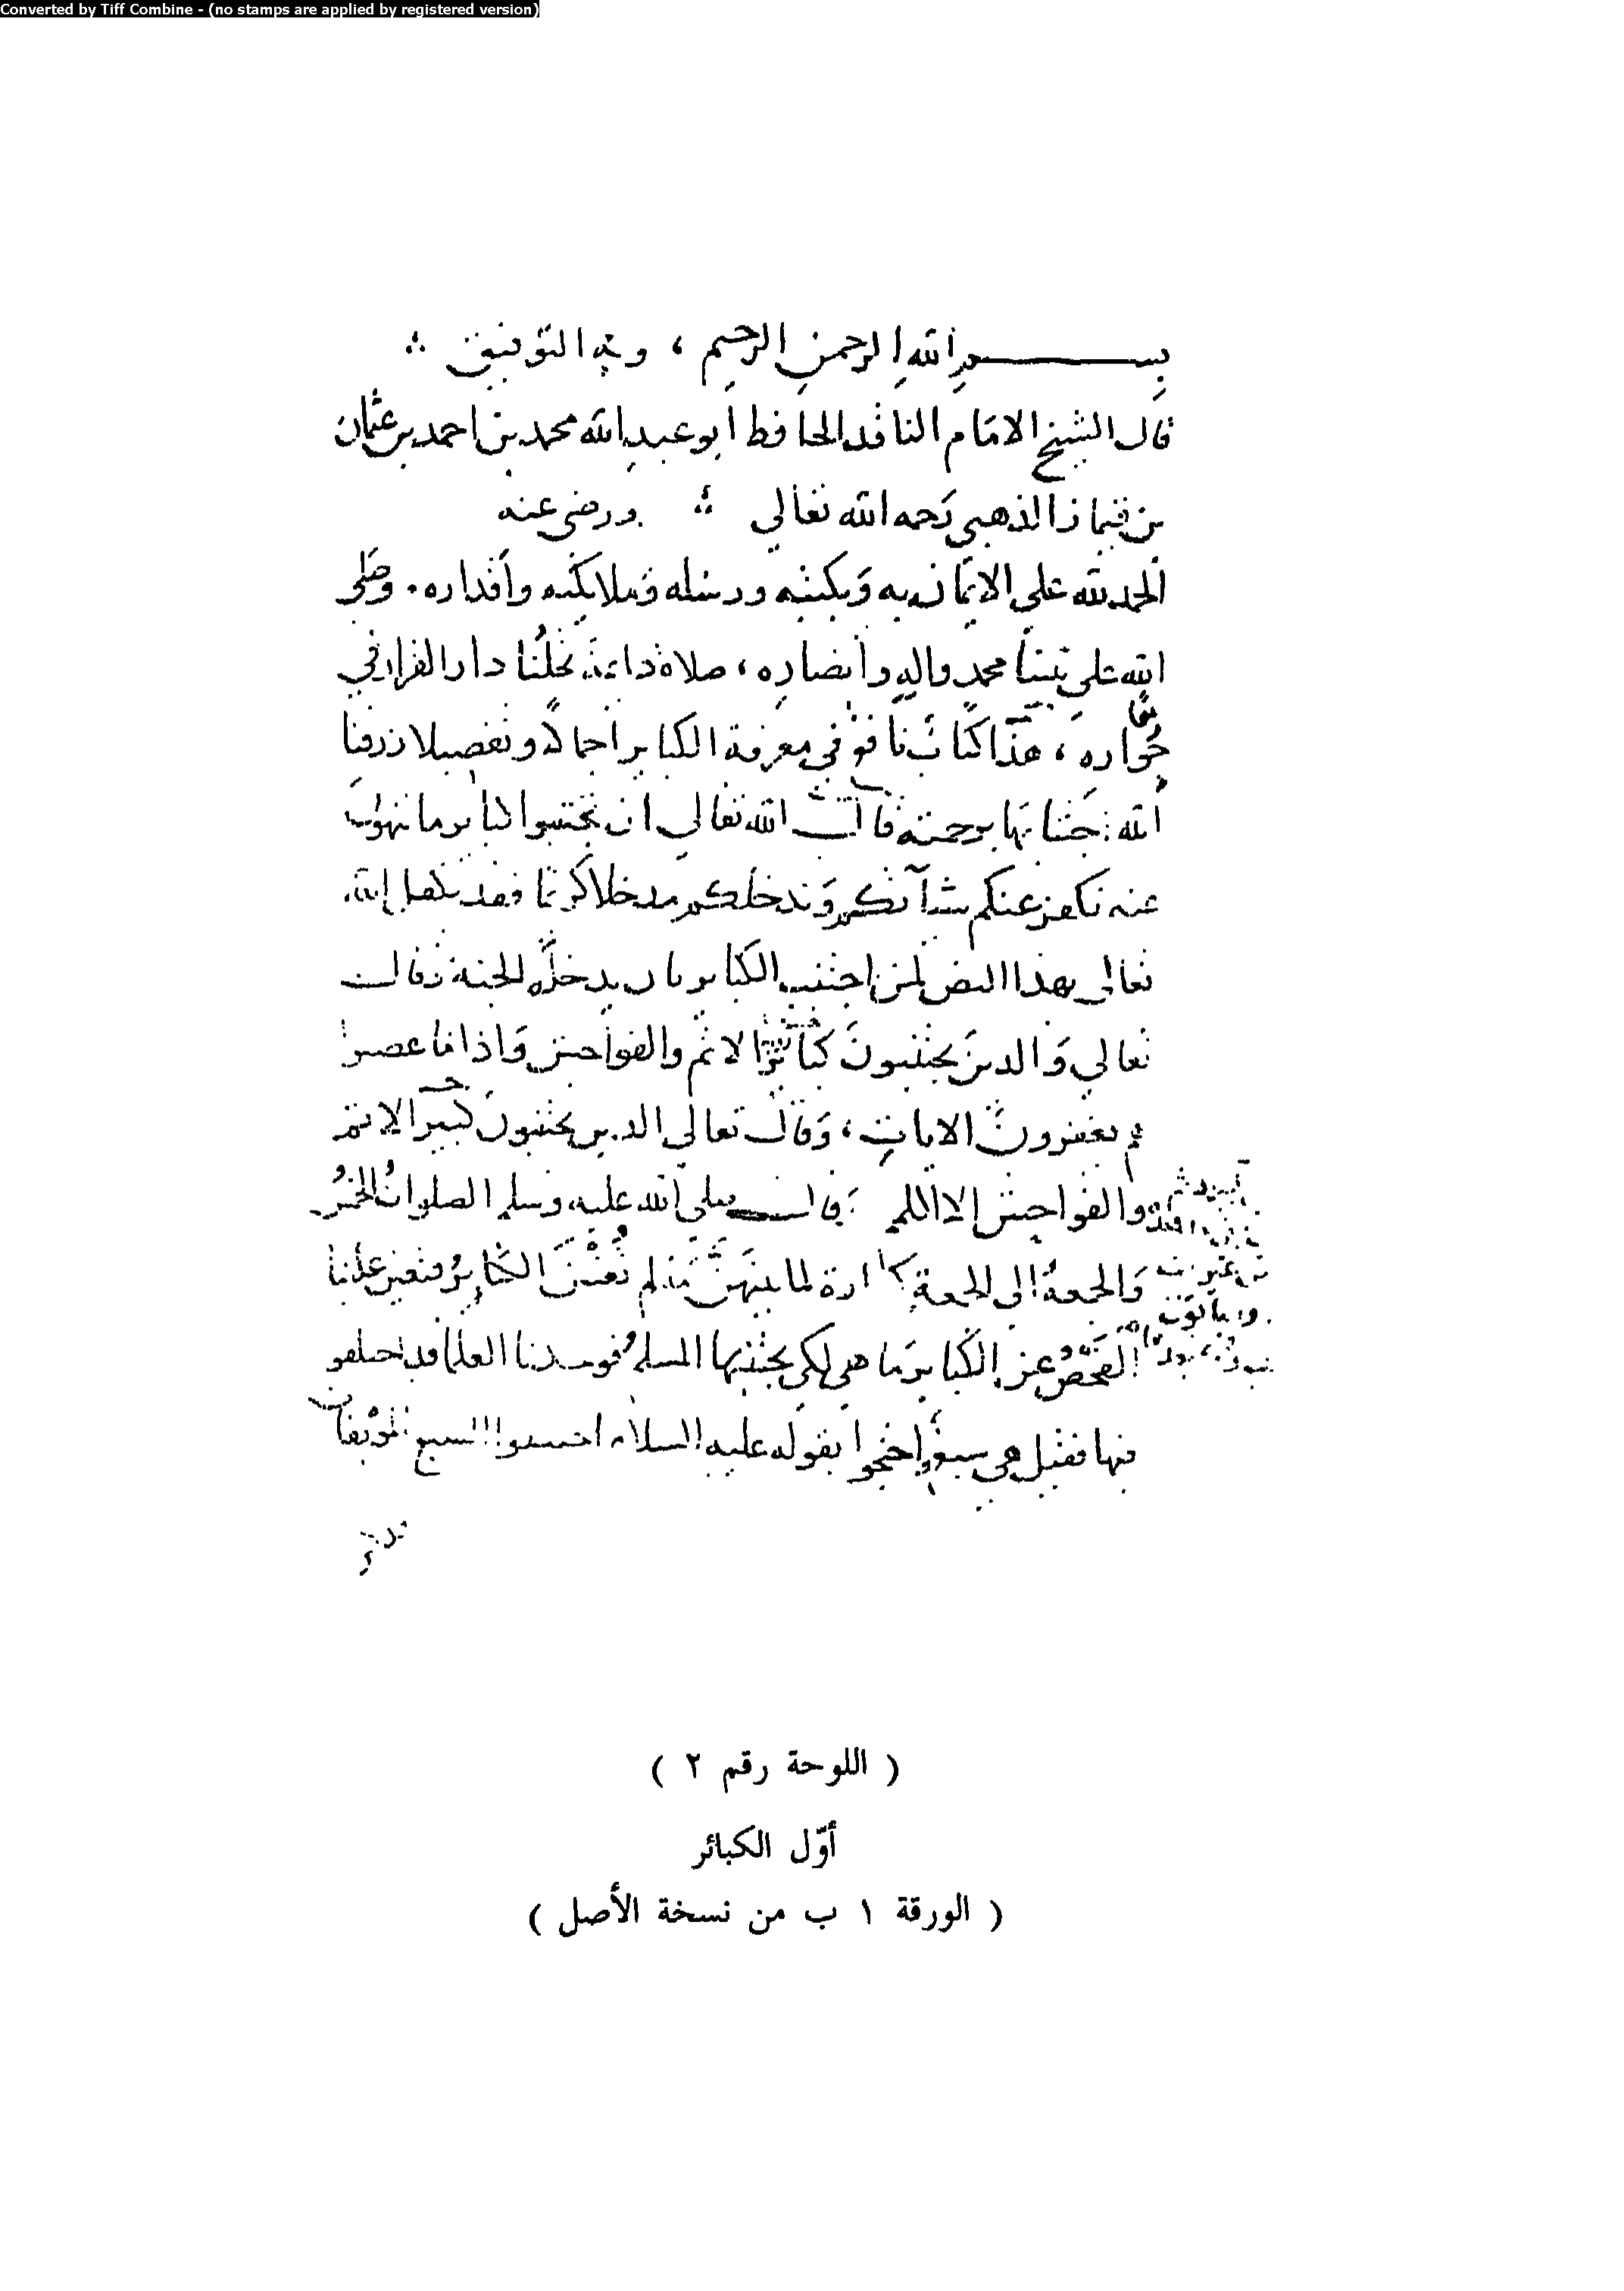 Converted by Tiff Combine - (no stamps are applied by registered version)
بسم الله الرحمن الرحيم ، وبه التوفيق
قال الشيخ الامام الناقد الحافظ ابو عبد الله محمد بن احمد بن عثمان
بن قيماز الذهبي رحمه الله تعالى ورضي عنه
الحمد لله على الايمان به وبكتبه ورسله وملايكته واقداره . وصلى
الله على نبينا محمد واله وانصاره ، صلاة دائمة تحلنا دار القرار في
جواره ، هذا كتاب نافع في معرفة الكباير اجمالا وتفصيلا رزقنا
الله اجتنابها برحمته قال الله تعالى ان تجتنبوا كباير ما تنهون
عنه نكفر عنكم سيآتكم وندخلكم مدخلا كريما فقد تكفل الله
تعالى بهذا النص لمن اجتنب الكباير بان يدخله الجنة وقال
تعالى والذين يجتنبون كبائر الاثم والفواحش واذا ما غضبوا
هم يغفرون الايات ، وقال تعالى الذين يجتنبون كبير الاثم
والفواحش الا اللمم قال صلى الله عليه وسلم الصلوات الخمس
والجمعة الى الجمعة كفارة لما بينهن ما لم تغش الكباير فتعين علينا
الفحص عن الكباير ما هي لكي يجتنبها المسلم فوجدنا العلما قد اختلفو
فيها فقيل هي سبع واحتجوا بقوله عليه السلام اجتنبوا السبع الموبقات
( اللوحة رقم ٢ )
أوّل الكبائر
( الورقة ١ ب من نسخة الأصل )